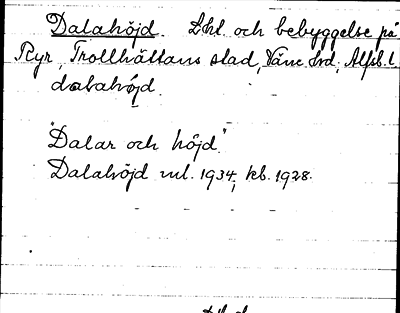 Dalahöjd. Lht. och bebyggelse på
Ryr, Trollhättans stad, Väne hd, Älfsb. l.
dalahöjd.
"Dalar och höjd."
Dalahöjd ml. 1934, kb. 1928.